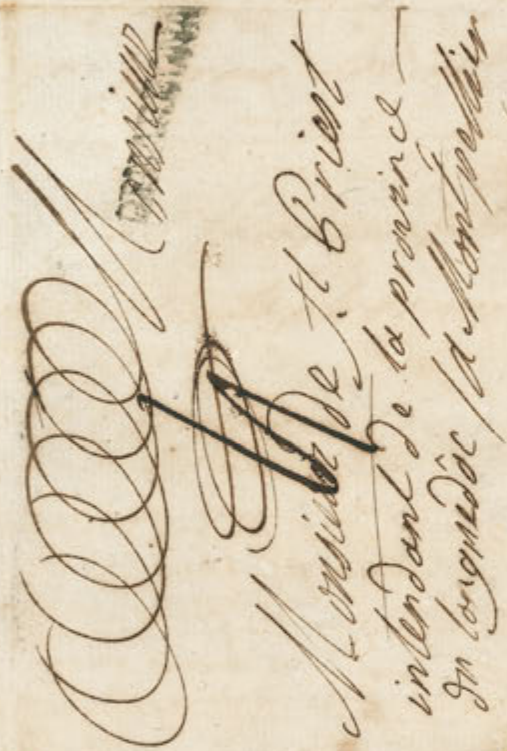 Monsieur
Monsieur de St Priest
intendant de la province
du Longuedòc / a Montpellier